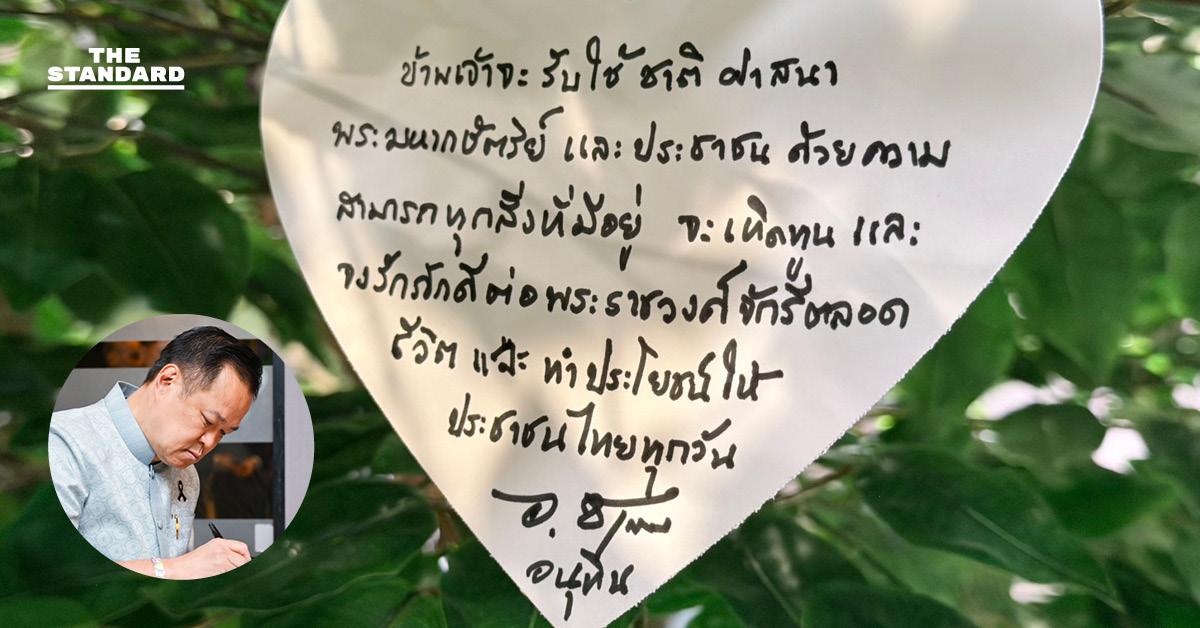 THE
STANDARD
ข้าพเจ้าจะ รับใช้ ชาติ ศาสนา
พระมหากษัตริย์ และ ประชาชน ด้วยความ
สามารถทุกสิ่งที่มีอยู่ จะเทิดทูน และ
จงรักภักดีต่อพระราชวงศ์จักรีตลอด
ชีวิต และ ทำประโยชน์ให้
ประชาชนไทยทุกวัน
อนุทิน